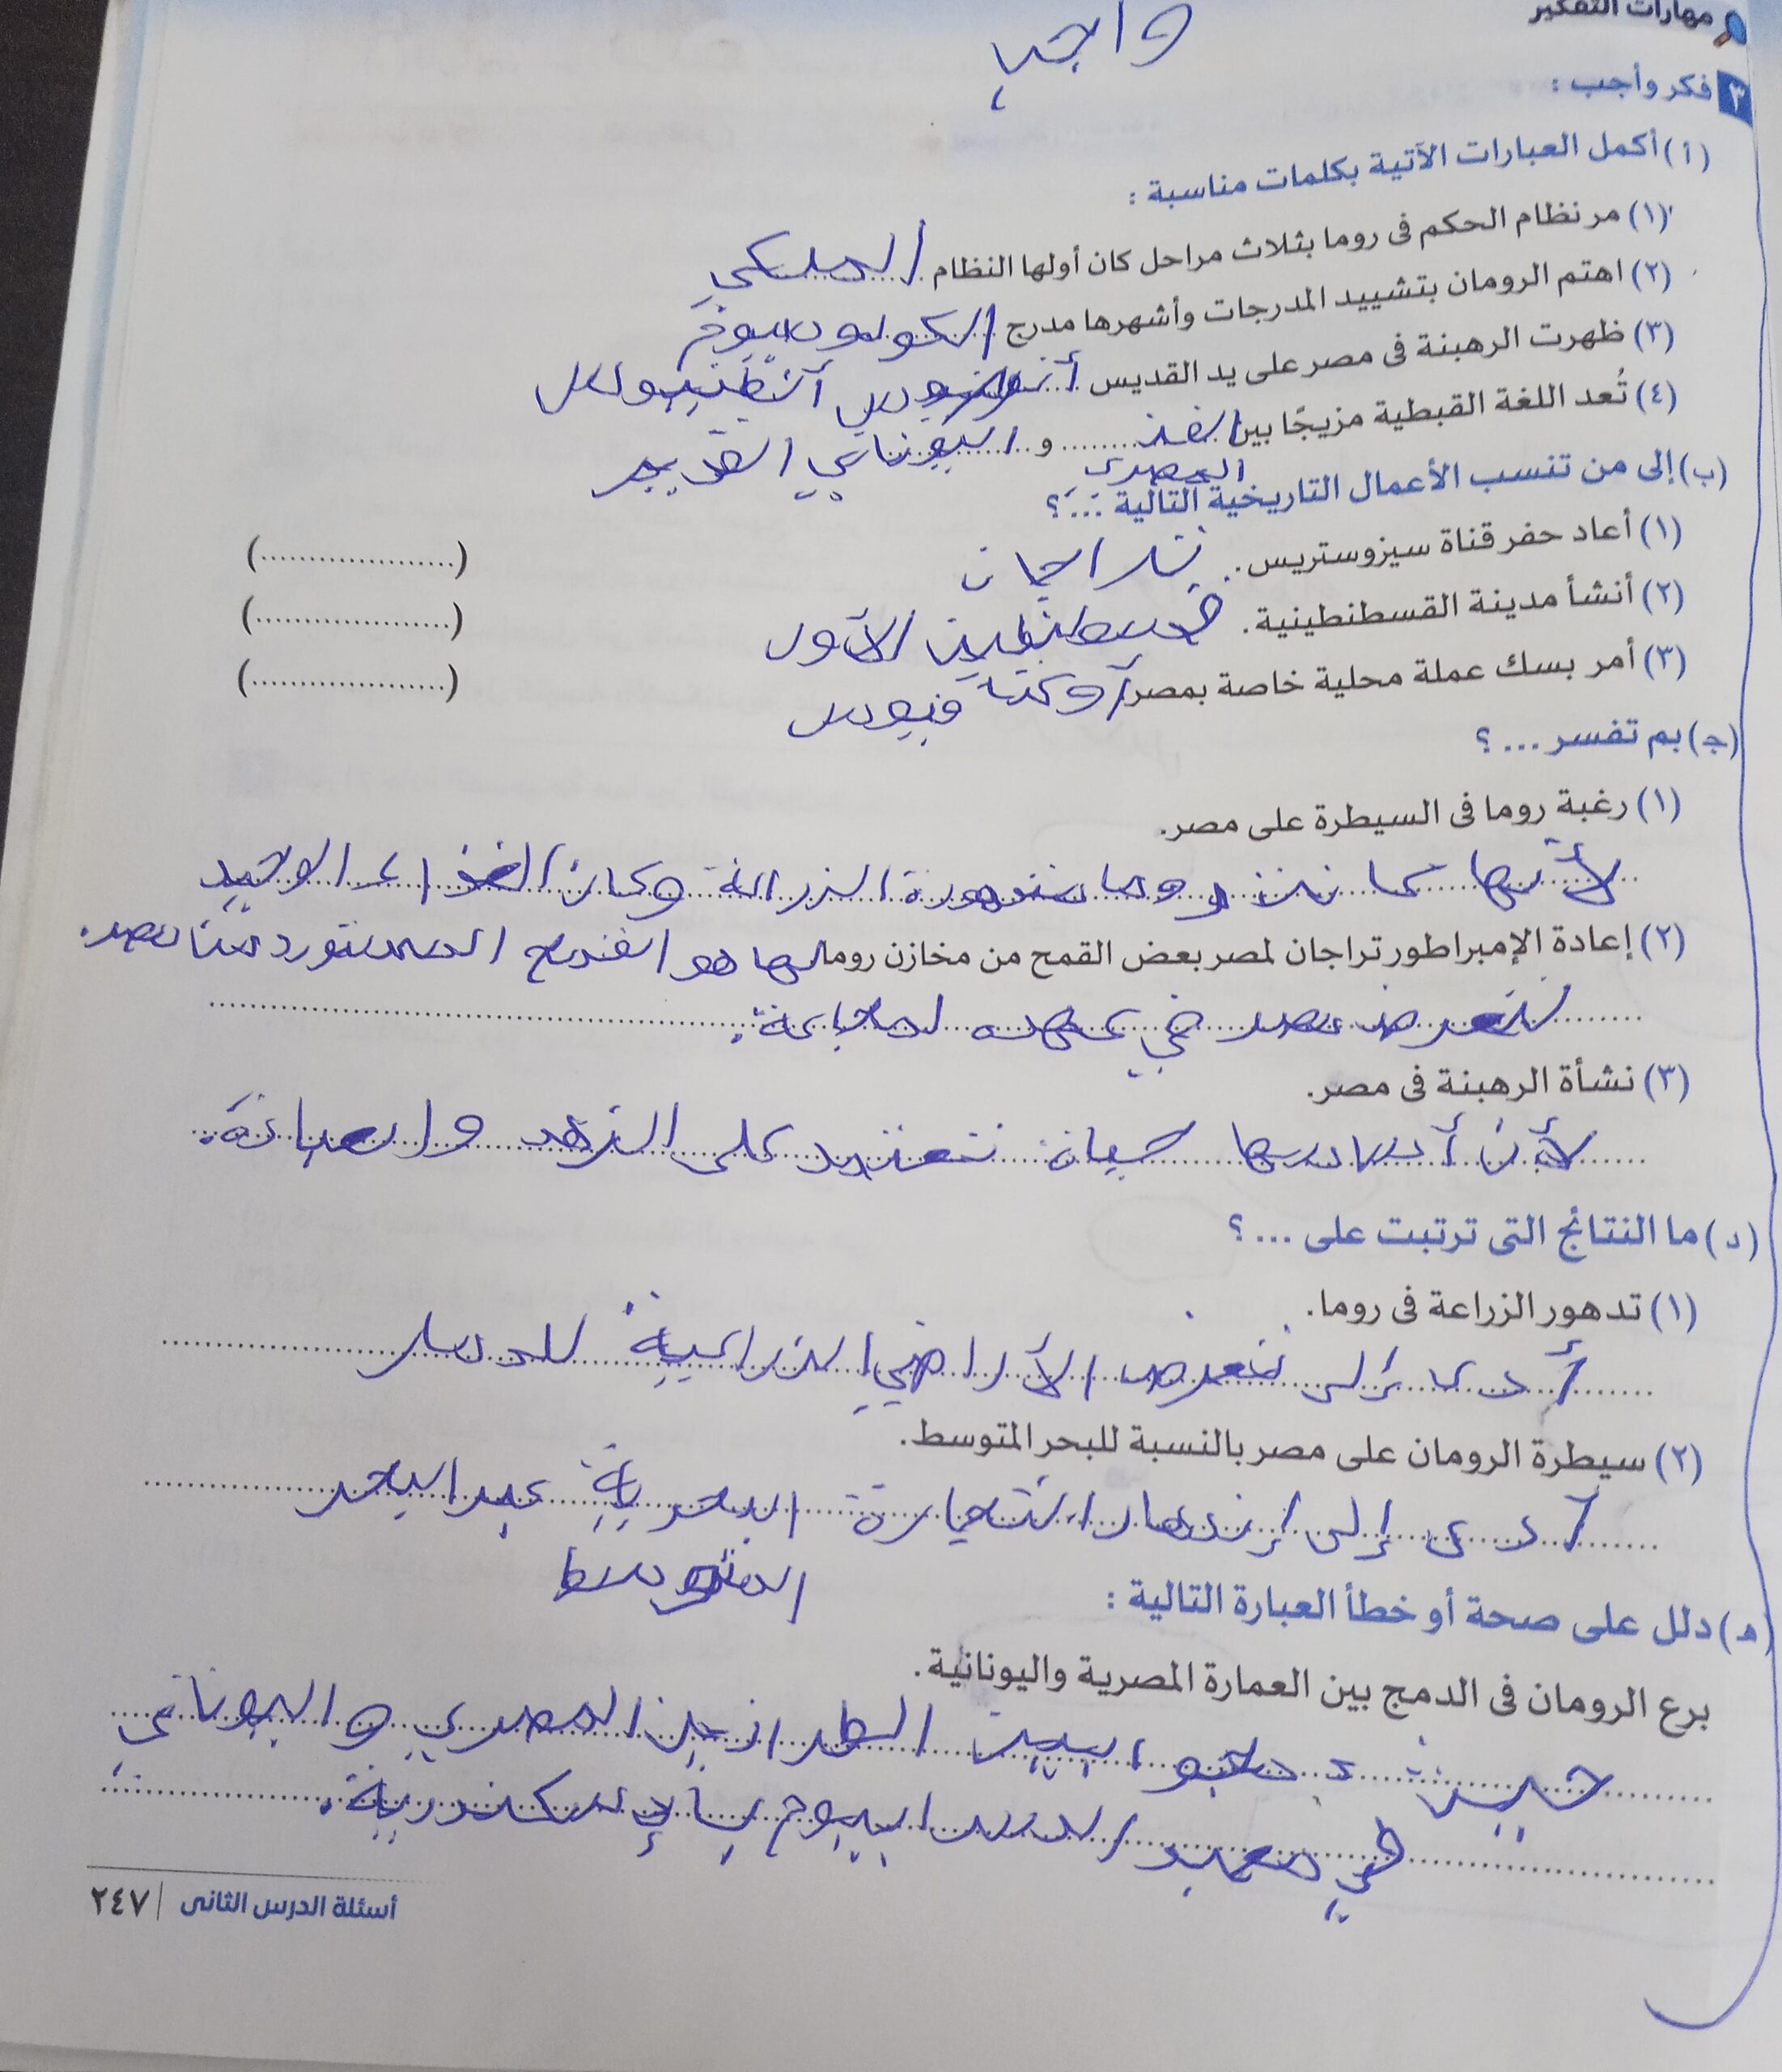 مهارات التفكير
واجب
٣ فكر وأجب :
(أ) أكمل العبارات الآتية بكلمات مناسبة :
(١) مر نظام الحكم فى روما بثلاث مراحل كان أولها النظام الملكي
(٢) اهتم الرومان بتشييد المدرجات وأشهرها مدرج الكولوسيوم
(٣) ظهرت الرهبنة فى مصر على يد القديس
(٤) تُعد اللغة القبطية مزيجًا بين الفن و اليوناني القديم
المصري
(ب) إلى من تنسب الأعمال التاريخية التالية ...؟
(١) أعاد حفر قناة سيزوستريس. تراجان (....................)
(٢) أنشأ مدينة القسطنطينية. قسطنطين الأول (....................)
(٣) أمر بسك عملة محلية خاصة بمصر (....................)
(جـ) بم تفسر ... ؟
(١) رغبة روما فى السيطرة على مصر.
لأنها كانت روما الزراعة وكان الغذاء الوحيد
(٢) إعادة الإمبراطور تراجان لمصر بعض القمح من مخازن روما. لها هو القمح المستورد من مصر.
لتعرض مصر في عهده لمجاعة.
(٣) نشأة الرهبنة فى مصر.
لأن أساسها حياة تعتمد على الزهد والعبادة.
(د) ما النتائج التى ترتبت على ... ؟
(١) تدهور الزراعة فى روما.
أدى إلى تعرض الأراضي الزراعية للدمار
(٢) سيطرة الرومان على مصر بالنسبة للبحر المتوسط.
أدى إلى إزدهار التجارة البحرية عبر البحر
المتوسط
(هـ) دلل على صحة أو خطأ العبارة التالية :
برع الرومان فى الدمج بين العمارة المصرية واليونانية.
حيث دمجوا بين الطرازين المصري واليوناني
في معبد السرابيوم بالإسكندرية.
أسئلة الدرس الثانى | ٢٤٧